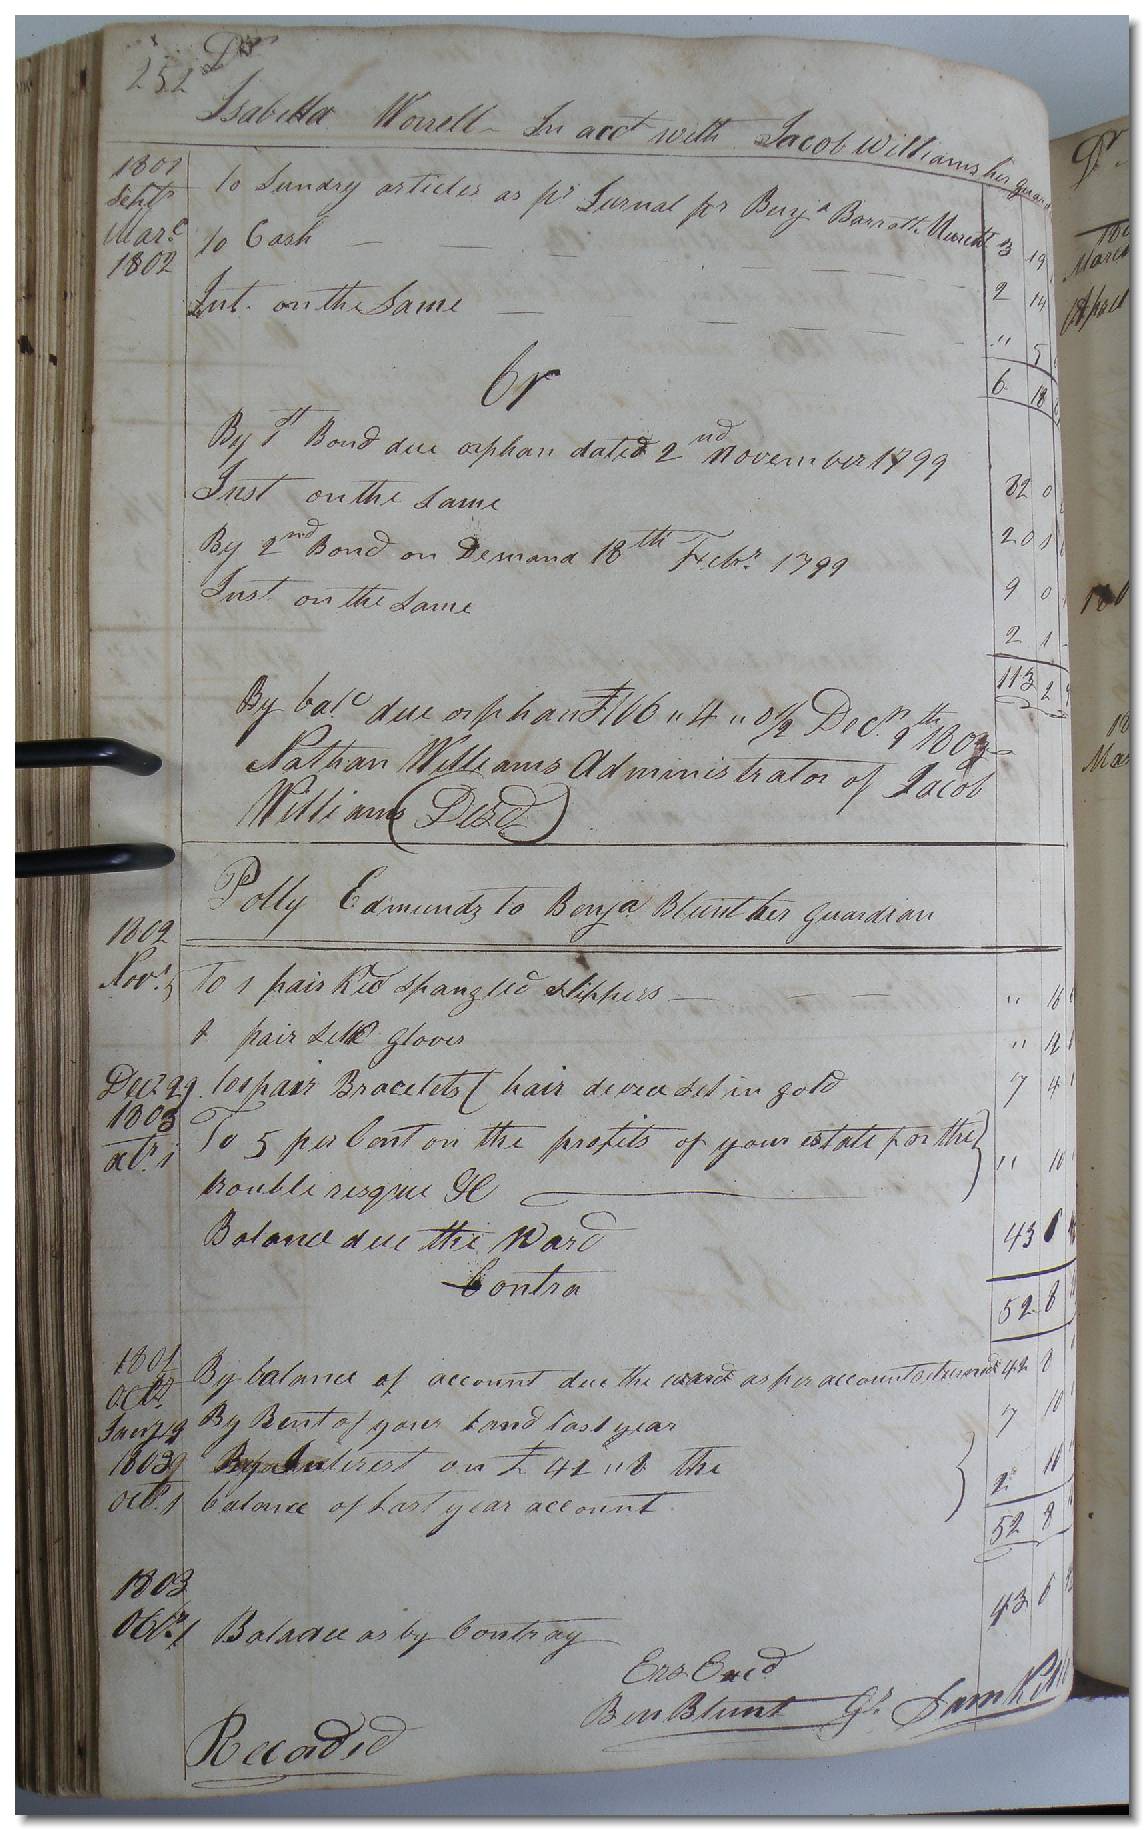 252 Dr
Isabella Worrell - In acct with Jacob Williams her guard
1801
Sept To Sundry articles as pr Jurnal for Benja Barrott Mercht 3 19
Marc To Cash 2 14
1802
Int. on the Same " 5
6 18
Cr
By 1st Bond due orphan dated 2nd November 1799 82 0
Inst on the Same 20 1
By 2nd Bond on Demand 18th Febr. 1799 9 0
Inst on the Same 2 1
113 2
By balc due orphan £106 " 4 " 0½ Decr. 9th 1803
Nathan Williams Administrator of Jacob
Williams (Decd)
Polly Edmunds to Benja Blunt her guardian
1802
Novr. 5 To 1 pair Kid spangled slippers " 16
1 pair silk gloves " 12
Decr 29. To 1 pair Bracelets ( hair device set in gold 7 4
1803
octr. 1 To 5 per Cent on the profits of your estate for the } " 10
trouble resque &C
Balance due the Ward 43 6
Contra
52 8
1801
octr. By balance of account due the ward as per account returned 42 8
Jany 9 By Rent of your Land last year 7 10
1803 By Interest on £ 42 " 8 the } 2 10
octr. 1 balance of Last year account
52 8
1803
Octr. 1 Balance as by Contray 43 6
Ers Excd
Ben Blunt Gr.
Recorded